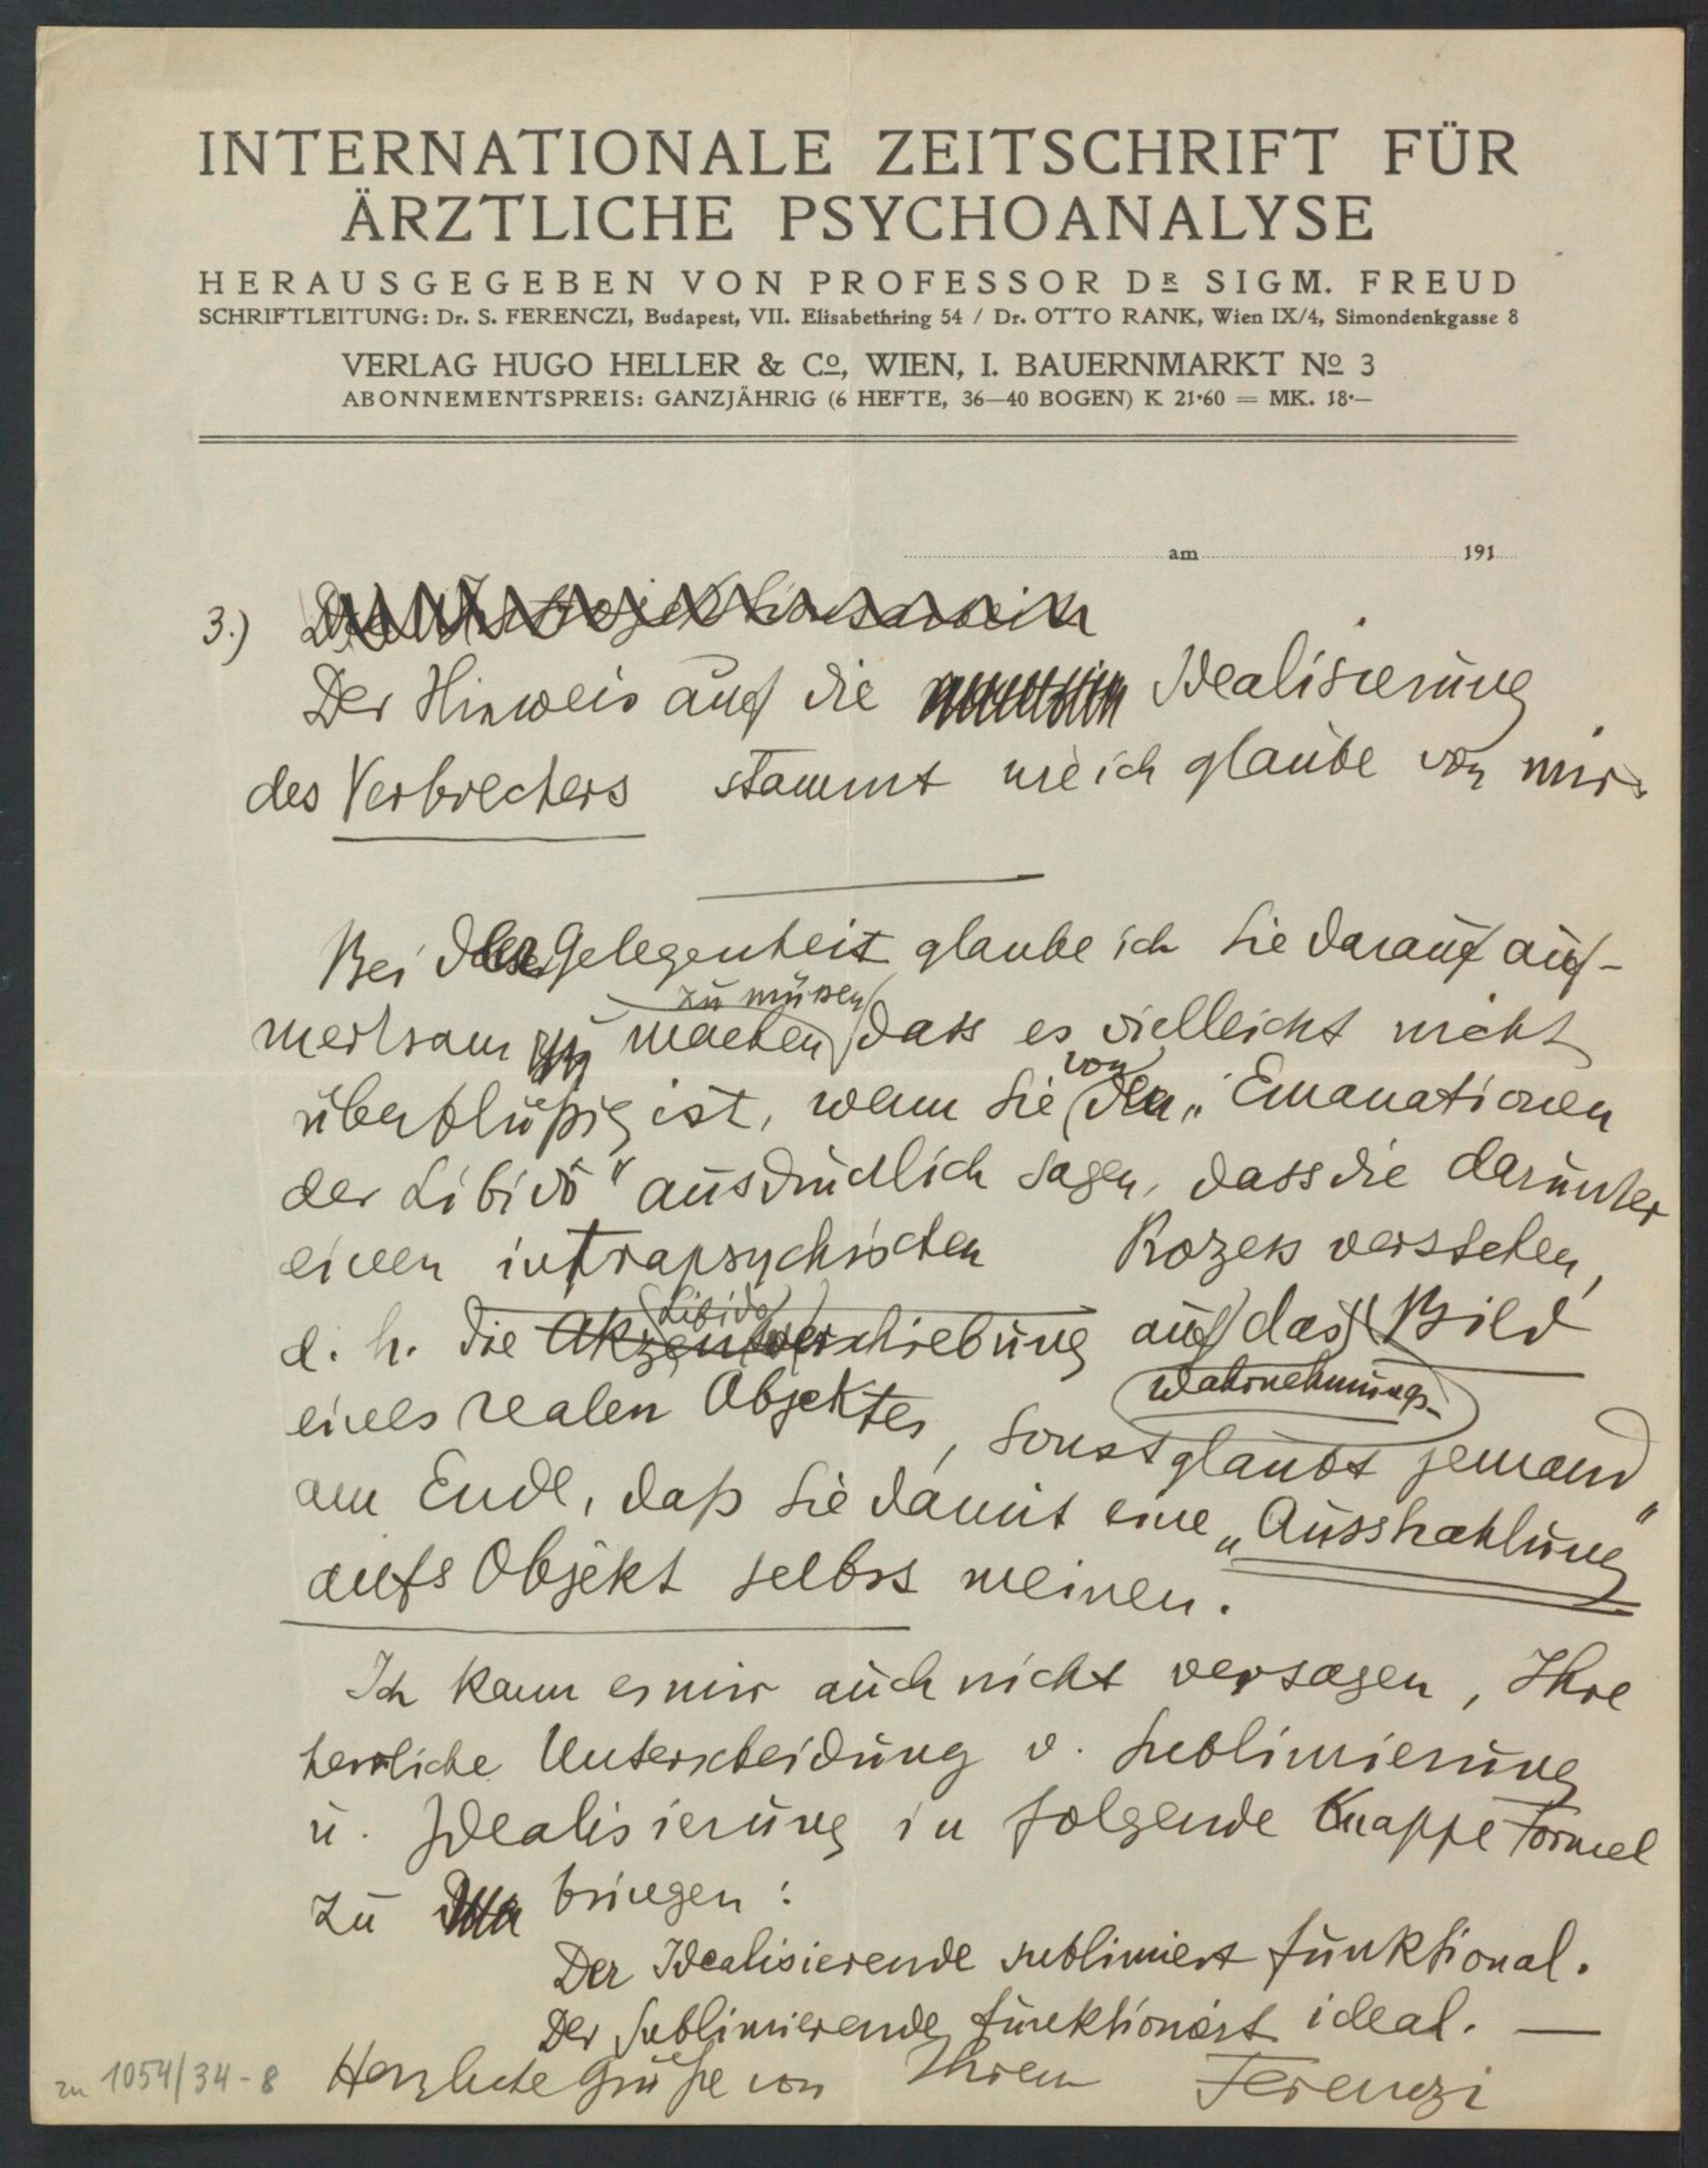 INTERNATIONALE ZEITSCHRIFT FÜR
ÄRZTLICHE PSYCHOANALYSE
HERAUSGEGEBEN VON PROFESSOR DR SIGM. FREUD
SCHRIFTLEITUNG: Dr. S. FERENCZI, Budapest, VII. Elisabethring 54 / Dr. OTTO RANK, Wien IX/4, Simondenkgasse 8
VERLAG HUGO HELLER & Co, WIEN, I. BAUERNMARKT No 3
ABONNEMENTSPREIS: GANZJÄHRIG (6 HEFTE, 36—40 BOGEN) K 21·60 = MK. 18·—
am 191
3.)
Der Hinweis auf die Idealisierung
des Verbrechers stammt wie ich glaube von mir.
Bei Gelegenheit glaube ich Sie darauf auf-
zu müssen
merksam machen dass es vielleicht nicht
von
überflüßig ist, wenn Sie den „Emanationen
der Libido" ausdrücklich sagen, dass Sie darunter
einen intrapsychischen Prozess verstehen,
Libido
d. h. die Akzentverschiebung auf das Bild
Wahrnehmungs-
eines realen Objektes, sonst glaubt jemand
am Ende, daß Sie damit eine „Ausstrahlung"
aufs Objekt selbst meinen.
Ich kann es mir auch nicht versagen, Ihre
herrliche Unterscheidung v. Sublimierung
u. Idealisierung in folgende knappe Formel
zu bringen:
Der Idealisierende sublimiert funktional.
Der Sublimierende funktioniert ideal. —
Herzliche Grüße von Ihrem Ferenczi
zu 1054/34-8